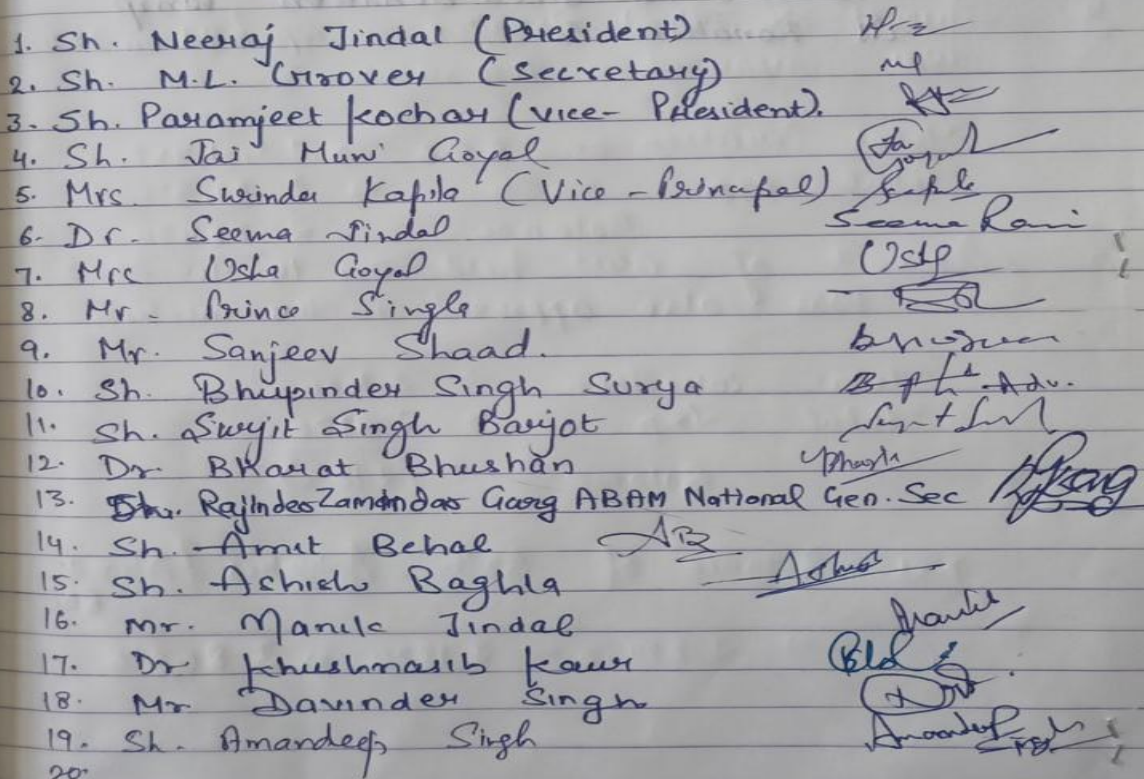 1. Sh. Neeraj Jindal (President)
2. Sh. M.L. Grover (Secretary)
3. Sh. Paramjeet Kochar (Vice- President).
4. Sh. Jai Muni Goyal
5. Mrs. Surinder Kapila (Vice - Principal)
6. Dr. Seema Jindal Seema Rani
7. Mrs Usha Goyal
8. Mr - Prince Singla
9. Mr. Sanjeev Shaad.
10. Sh. Bhupinder Singh Surya Adv.
11. Sh. Surjit Singh Barjot
12. Dr. BHarat Bhushan
13. Sh. Rajinder Garg ABAM National Gen. Sec
14. Sh. Amit Behal AB
15. Sh. Ashish Baghla
16. Mr. Manik Jindal
17. Dr Khushnasib Kaur
18. Mr Davinder Singh
19. Sh. Amandeep Singh Amandeep Singh
20.